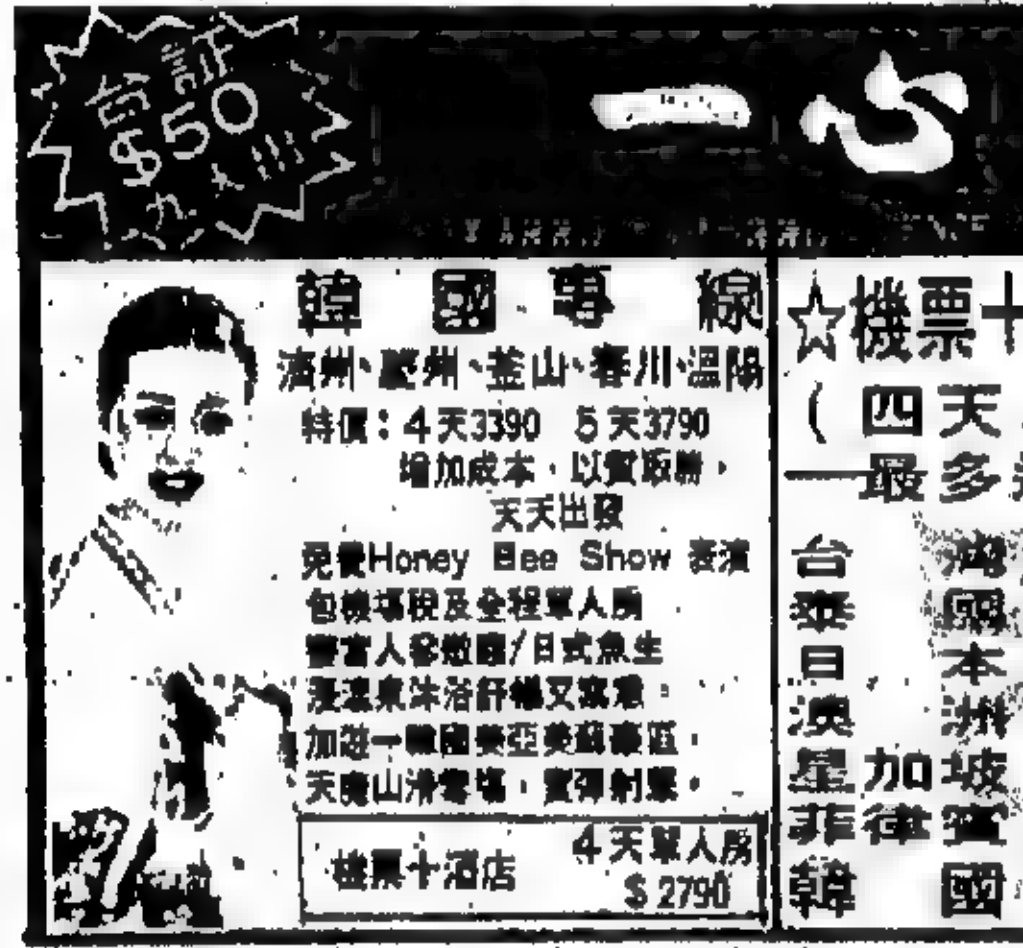 台 訂
$50
一心
韓國專線
濟州、慶州、釜山、春川、溫陽
特價：4天3390 5天3790
增加成本，以質取勝，
天天出發
免費Honey Bee Show 表演
包機場稅及全程單人房
/日式魚生
浸溫泉沐浴舒暢又寫意。
加遊一韓國
山滑雪場，實彈射擊。
機票十酒店
4天單人房
$2790
☆機票十
(四天
一最多
台灣
泰國
日本
澳洲
星加坡
菲律賓
韓國